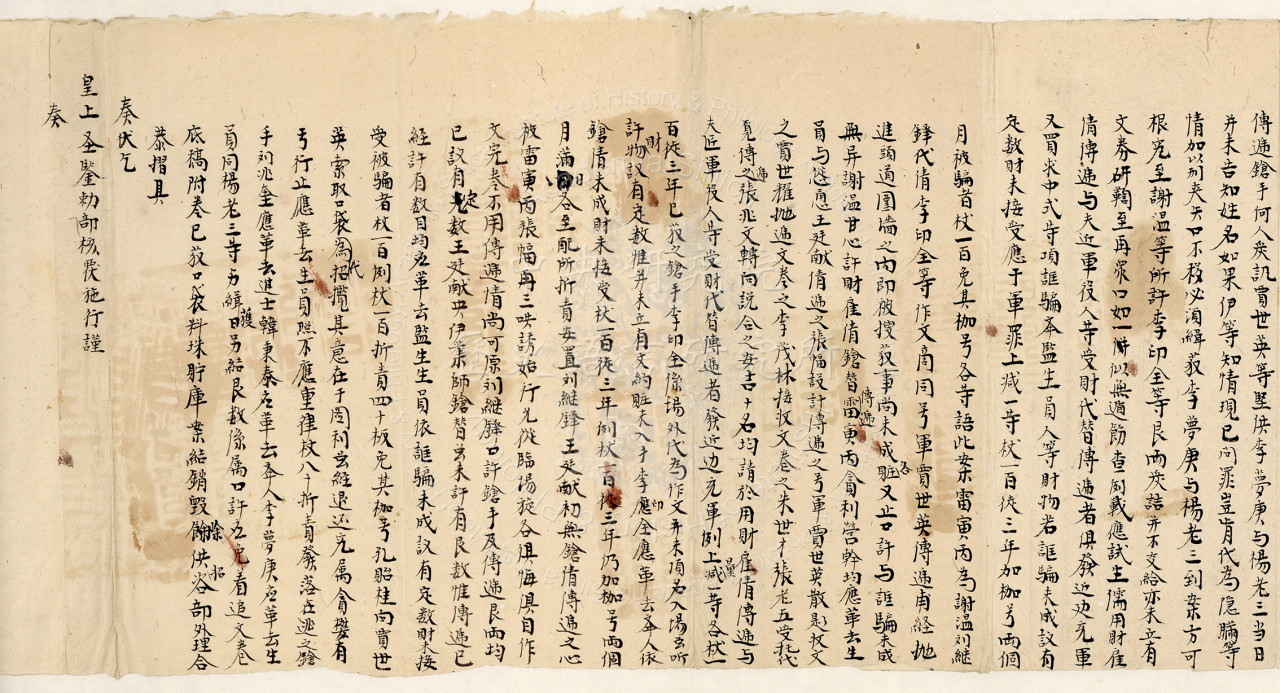 傳遞鎗手何人矣訊賈世英等堅供李夢庚与楊老三当日
並未告知姓名如果伊等知情現已问罪豈肯代為隐瞞等
情加以刑夹矢口不移必湏緝获李夢庚与楊老三到案方可
根究至謝温等所許李印全等艮兩矣詰並不交給亦未立有
文券研鞫至再眾口如一似無遁飭查例載應試生儒用財雇
倩傳遞与夫近軍役人等受財代替傳遞者俱發近边充軍
又買求中式等項誆騙举監生員人等財物若誆騙未成议有
定数財未接受應于軍罪上减一等杖一百徒三年加枷号兩個
月被騙者杖一百免其枷号各等語此案雷寅丙為謝温刘継
鋒代倩李印全等作文商同号軍賈世英傳遞甫経抛
進頭道圍墙之内即被搜获事尚未成贓又止口許与誆騙未成
傳遞
無异謝温甘心許財雇倩鎗替雷寅丙貪利营幹均應革去生
各
員与慫恿王廷献倩遞之張偪設計傳遞之号軍賈世英散髮收文
之賈世耀抛遞文卷之李茂林接收文卷之朱世才張老五受托代
覓傳遞之張兆文轉向説合之安吉十名均請於用財雇倩傳遞与
夫匠軍役人等受財代替傳遞者發近边充軍例上减一等各杖一
量
百徒三年已获之鎗手李印全係塲外代為作文並未頂名入塲虫听
許財物议有定数惟並未立有文約贓未入手李印全應革去举人依
鎗倩未成財未接受杖一百徒三年例杖一百徒三年仍加枷号兩個
月滿日各至配所折責安置刘継鋒王廷献初無鎗倩傳遞之心
被雷寅丙張偪再三哄誘始行允從臨塲旋各俱悔俱自作
文完卷不用傳遞情尚可原刘継鋒口許鎗手及傳遞艮兩均
已议有定数王廷献央伊業師鎗替虫未許有艮数惟傳遞已
経許有数目均應革去監生生員依誆騙未成议有定数財未接
受被騙者杖一百例杖一百折責四十板免其枷号孔貽桂向賈世
英索取口袋代為招攬其意在于图利虫経退还究属貪婪有
亏行止應革去生員照不應重律杖八十折責發落在逃之鎗
手刘兆奎應革去進士韓秉泰應革去举人李夢庚應革去生
員同楊老三等另緝獲日另结艮数係属口許应免着追文卷
底稿附卷已获口袋料珠貯庫案结銷毀除餘供招咨部外理合
恭摺具
奏伏乞
皇上圣鑒勅部核覆施行謹
奏